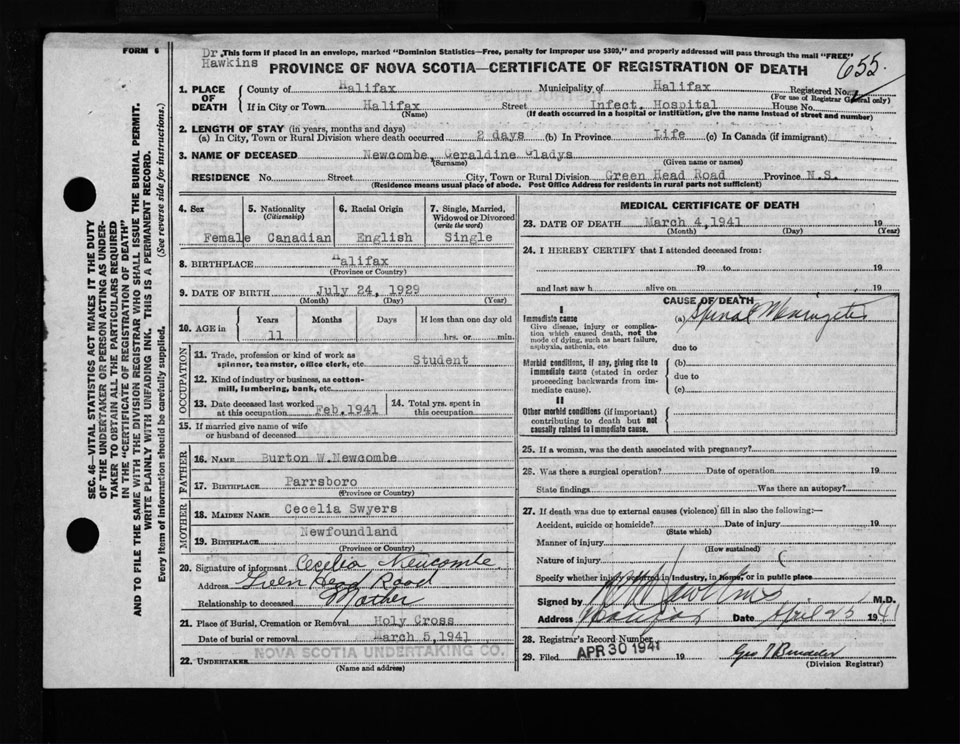 FORM 6
Dr.
Hawkins
This form if placed in an envelope, marked "Dominion Statistics—Free, penalty for improper use $300," and properly addressed will pass through the mail "FREE"
PROVINCE OF NOVA SCOTIA—CERTIFICATE OF REGISTRATION OF DEATH
655
1. PLACE OF DEATH
County of Halifax Municipality of Halifax Registered No.
(For use of Registrar General only)
If in City or Town Halifax Street Infect. Hospital House No.
(Name) (If death occurred in a hospital or institution, give the name instead of street and number)
2. LENGTH OF STAY (in years, months and days)
(a) In City, Town or Rural Division where death occurred 2 days (b) In Province Life (c) In Canada (if immigrant)
3. NAME OF DECEASED Newcombe, Geraldine Gladys
(Surname) (Given name or names)
RESIDENCE No. Street City, Town or Rural Division Green Head Road Province N.S.
(Residence means usual place of abode. Post Office Address for residents in rural parts not sufficient)
4. Sex
Female
5. Nationality
(Citizenship)
Canadian
6. Racial Origin
English
7. Single, Married,
Widowed or Divorced
(write the word)
Single
8. BIRTHPLACE Halifax
(Province or Country)
9. DATE OF BIRTH July 24, 1929
(Month) (Day) (Year)
10. AGE in
Years Months Days If less than one day old
11 hrs. or min.
OCCUPATION
11. Trade, profession or kind of work as
spinner, teamster, office clerk, etc. Student
12. Kind of industry or business, as cotton-
mill, lumbering, bank, etc.
13. Date deceased last worked
at this occupation Feb. 1941
14. Total yrs. spent in
this occupation
15. If married give name of wife
or husband of deceased
FATHER
16. NAME Burton W. Newcombe
17. BIRTHPLACE Parrsboro
(Province or Country)
MOTHER
18. MAIDEN NAME Cecelia Swyers
19. BIRTHPLACE Newfoundland
(Province or Country)
20. Signature of informant Cecilia Newcombe
Address Green Head Road
Relationship to deceased Mother
21. Place of Burial, Cremation or Removal Holy Cross
Date of burial or removal March 5, 1941
22. UNDERTAKER NOVA SCOTIA UNDERTAKING CO.
(Name and address)
MEDICAL CERTIFICATE OF DEATH
23. DATE OF DEATH March 4, 1941 19
(Month) (Day) (Year)
24. I HEREBY CERTIFY that I attended deceased from:
19 to 19
and last saw h alive on 19
CAUSE OF DEATH
I
Immediate cause
Give disease, injury or complica-
tion which caused death, not the
mode of dying, such as heart failure,
asphyxia, asthenia, etc.
(a) Spinal Meningitis
due to
Morbid conditions, if any, giving rise to
immediate cause (stated in order
proceeding backwards from im-
mediate cause).
(b)
due to
(c)
II
Other morbid conditions (if important)
contributing to death but not
causally related to immediate cause.
25. If a woman, was the death associated with pregnancy?
26. Was there a surgical operation? Date of operation 19
State findings Was there an autopsy?
27. If death was due to external causes (violence) fill in also the following:—
Accident, suicide or homicide? Date of injury 19
(State which)
Manner of injury
(How sustained)
Nature of injury
Specify whether injury occurred in industry, in home, or in public place
Signed by Hawkins M.D.
Address Halifax Date April 25 1941
28. Registrar's Record Number
29. Filed APR 30 1941 19
(Division Registrar)
SEC. 46—VITAL STATISTICS ACT MAKES IT THE DUTY
OF THE UNDERTAKER OR PERSON ACTING AS UNDER-
TAKER TO OBTAIN ALL THE PARTICULARS REQUIRED
IN THE "CERTIFICATE OF REGISTRATION OF DEATH"
AND TO FILE THE SAME WITH THE DIVISION REGISTRAR WHO SHALL ISSUE THE BURIAL PERMIT.
WRITE PLAINLY WITH UNFADING INK. THIS IS A PERMANENT RECORD.
Every item of information should be carefully supplied. (See reverse side for instructions.)